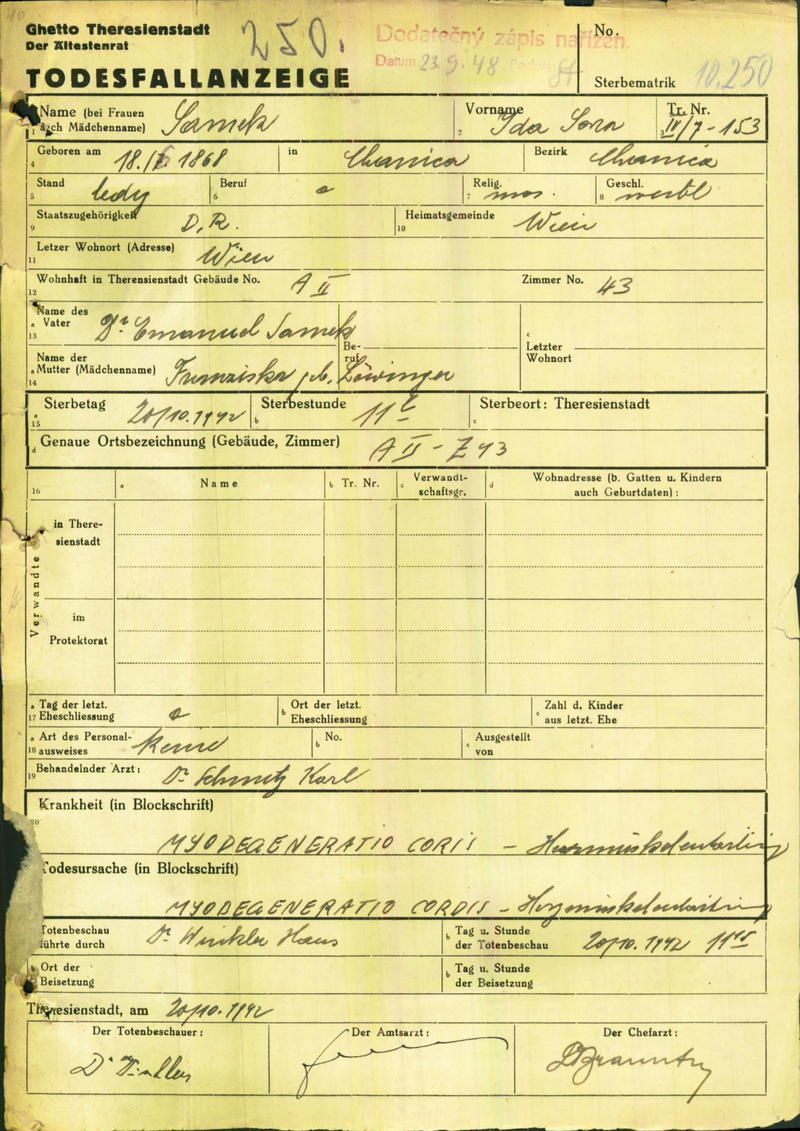 Ghetto Theresienstadt
Der Ältestenrat
TODESFALLANZEIGE
250.
Dodatečný zápis nařízen.
Datum 23.9.48
No.
Sterbematrik 10.250
Name (bei Frauen auch Mädchenname) Samek
1
Vorname Ida Sara
2
Tr. Nr. IV/7-153
3
Geboren am 18. 1868 in
4
Bezirk
Stand ledig
5
Beruf
6
Relig. mos.
7
Geschl. weibl
8
Staatszugehörigkeit D.R.
9
Heimatsgemeinde Wien
10
Letzer Wohnort (Adresse) Wien
11
Wohnhaft in Therensienstadt Gebäude No. A II
12
Zimmer No. 43
Name des Vater Dr Emanuel Samek
a
13
Name der Mutter (Mädchenname) Franziska geb. Löwinger
a
14
Be-
ruf
c
Letzter
Wohnort
Sterbetag 20/10.1942
a
15
Sterbestunde 11
b
Sterbeort: Theresienstadt
c
Genaue Ortsbezeichnung (Gebäude, Zimmer) A II - Z 43
d
16
a Name
b Tr. Nr.
c Verwandt-
schaftsgr.
d Wohnadresse (b. Gatten u. Kindern
auch Geburtdaten) :
Verwandte
in There-
sienstadt
im
Protektorat
a Tag der letzt.
17 Eheschliessung
b Ort der letzt.
Eheschliessung
c Zahl d. Kinder
aus letzt. Ehe
a Art des Personal-
18 ausweises keine
b No.
c Ausgestellt
von
Behandelnder Arzt: Dr. Schmitz Karl
19
Krankheit (in Blockschrift)
20
MYODEGENERATIO CORIS - Herzmuskelentartung
Todesursache (in Blockschrift)
MYODEGENERATIO CORDIS - Herzmuskelentartung
Totenbeschau
führte durch Dr. Winkler Hans
b Tag u. Stunde
der Totenbeschau 20/10.1942 11
b Ort der
Beisetzung
b Tag u. Stunde
der Beisetzung
Theresienstadt, am 20/10.1942
Der Totenbeschauer:
Der Amtsarzt:
Der Chefarzt:
Dr Winkler